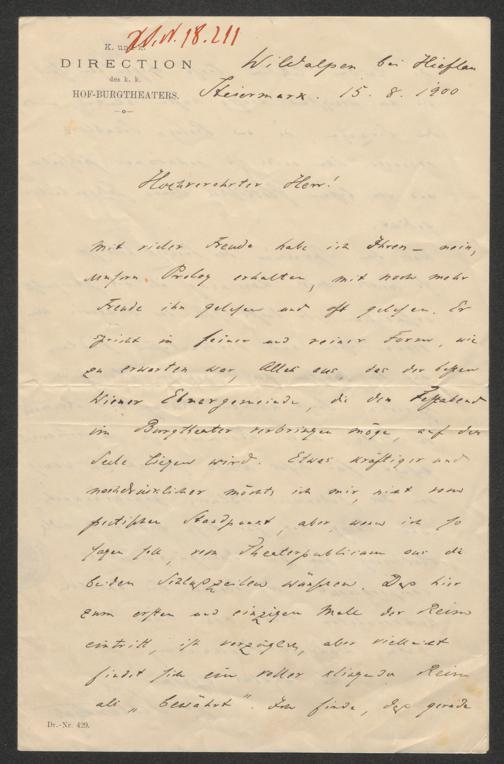 I.N. 18.211
K. und k.
DIRECTION
des k. k.
HOF-BURGTHEATERS.
Wildalpen bei Hieflau
Steiermark. 15. 8. 1900
Hochverehrter Herr!
Mit vieler Freude habe ich Ihren – nein,
unsern Prolog erhalten, mit noch mehr
Freude ihn gelesen und oft gelesen. Er
spricht in feiner und reiner Form, wie
zu erwarten war, Alles aus, das der besten
Wiener Ebnergemeinde, die den Festabend
im Burgtheater verbringen möge, auf der
Seele liegen wird. Etwas kräftiger und
nachdrücklicher möchte ich mir, nicht vom
poetischen Standpunkt, aber, wenn ich so
sagen soll, vom Theaterpublicum aus die
beiden Schlußzeilen wünschen. Daß hier
zum ersten und einzigen Male der Reim
eintritt, ist vorzüglich, aber vielleicht
findet sich ein voller klingender Reim
als „bewährt". Ich finde, daß gerade
Dr.-Nr. 429.